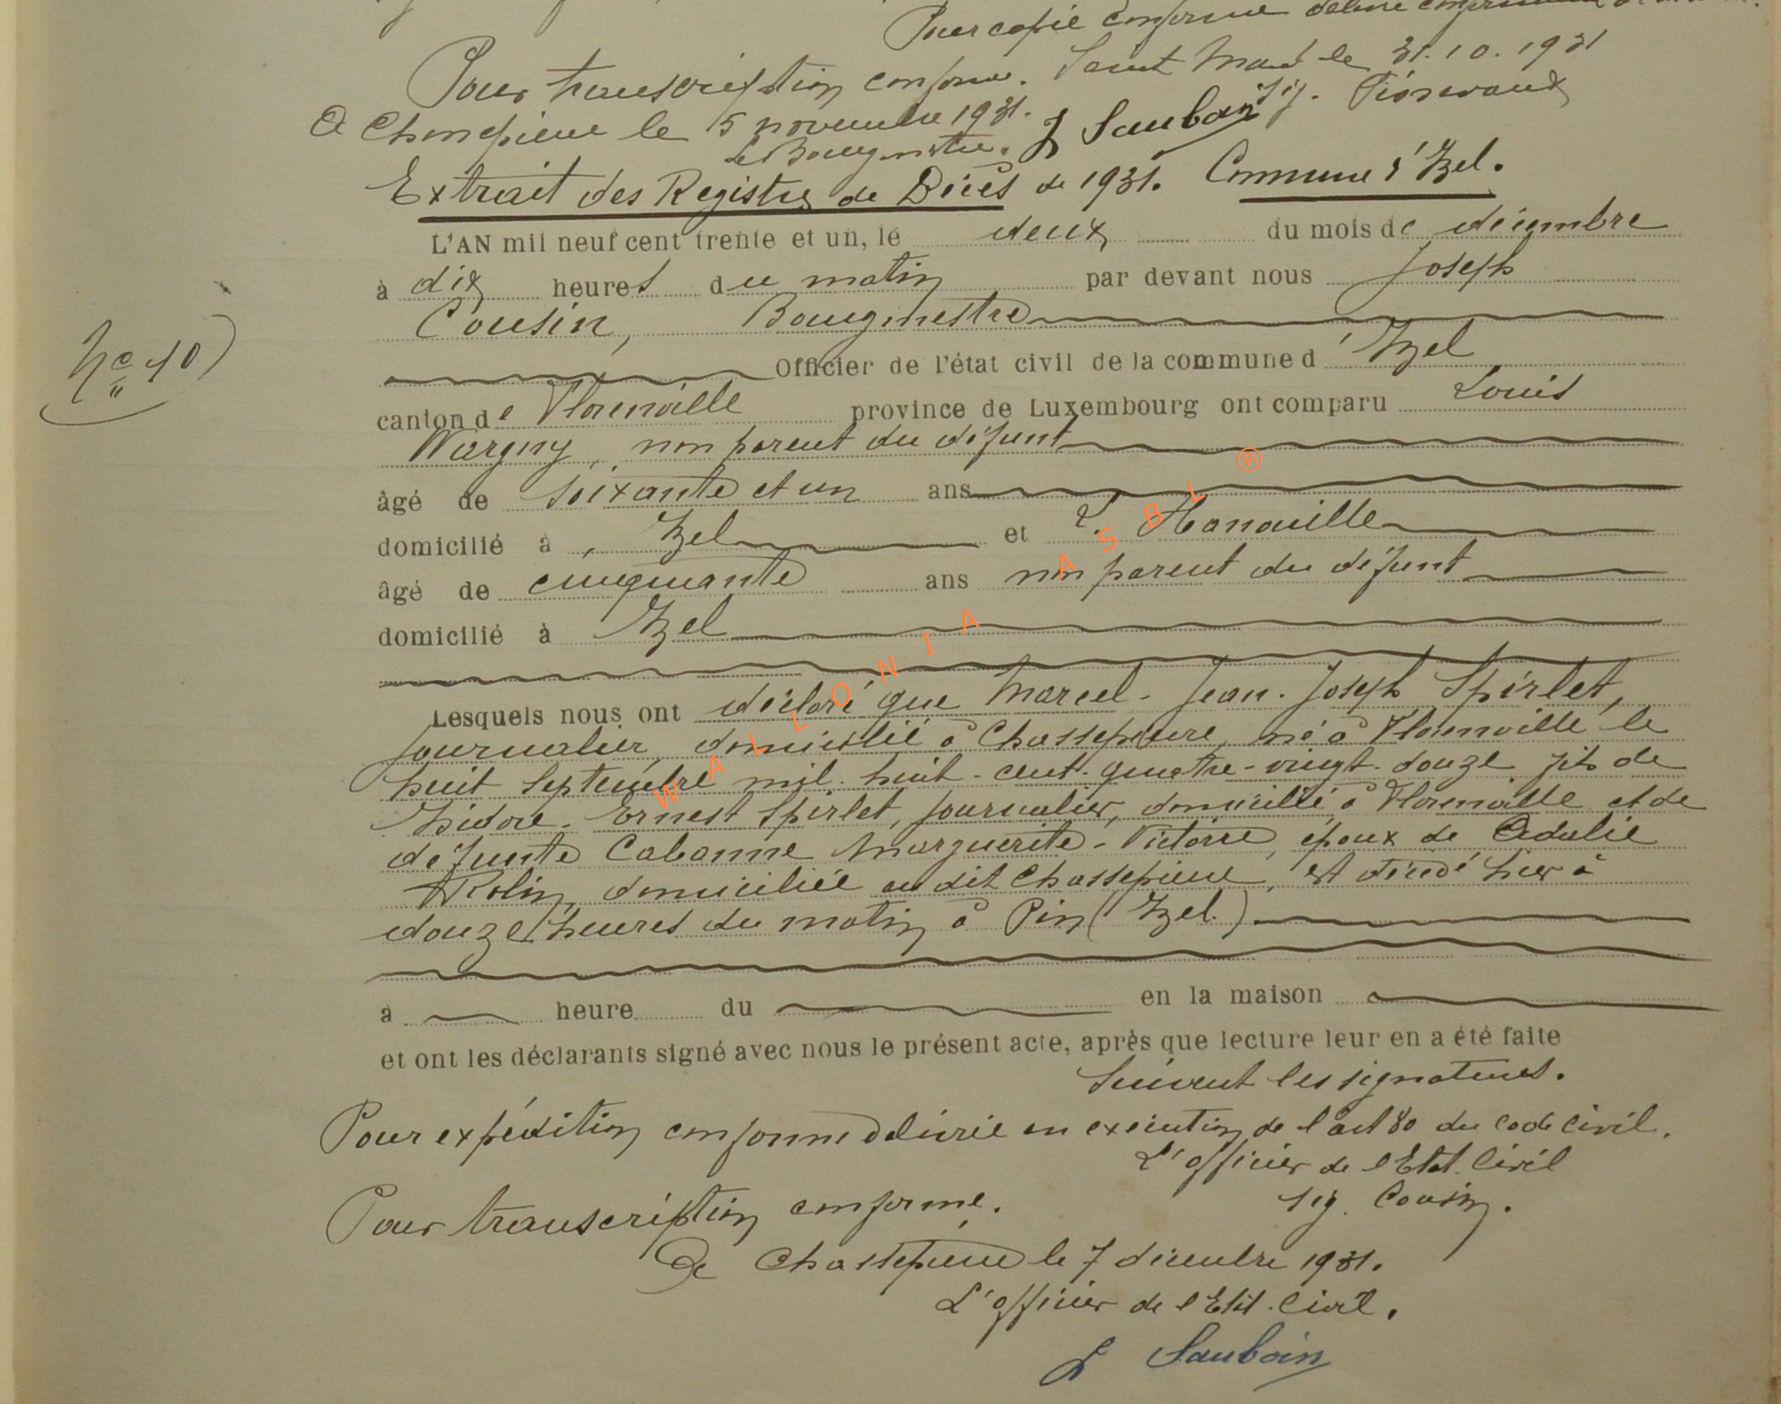 Pour copie conforme délivré
Pour transcription conforme. Saint Mard le 31.10.1931
A Chassepierre le 5 novembre 1931. J Sauboin sig.
Le Bourgmestre.
Extrait des Registres de Décès de 1931. Commune d'Izel.
L'AN mil neuf cent trente et un, le deux du mois de décembre
à dix heures du matin par devant nous Joseph
Cousin, Bourgmestre
Officier de l'état civil de la commune d'Izel
canton de Florenville province de Luxembourg ont comparu Louis
N° 10
Wargny, non parent du défunt
âgé de soixante et un ans
domicilié à Izel et L. Hanouille
âgé de cinquante ans non parent du défunt
domicilié à Izel
WALLONIA ASBL ®
Lesquels nous ont déclaré que Marcel-Jean-Joseph Spirlet,
journalier, domicilié à Chassepierre, né à Florenville le
huit Septembre mil-huit-cent-quatre-vingt-douze, fils de
Isidore-Ernest Spirlet, journalier, domicilié à Florenville et de
défunte Cabanne Marguerite-Victoire, époux de Adulie
Rolin, domiciliée au dit Chassepierre, est décédé hier à
douze heures du matin à Pin (Izel)
à heure du en la maison
et ont les déclarants signé avec nous le présent acte, après que lecture leur en a été faite
Suivent les signatures.
Pour expédition conforme délivrée en exécution de l'art 80 du code civil.
L'officier de l'Etat. Civil
sig. Cousin.
Pour transcription conforme.
A Chassepierre le 7 décembre 1931.
L'officier de l'Etat. Civil.
J Sauboin